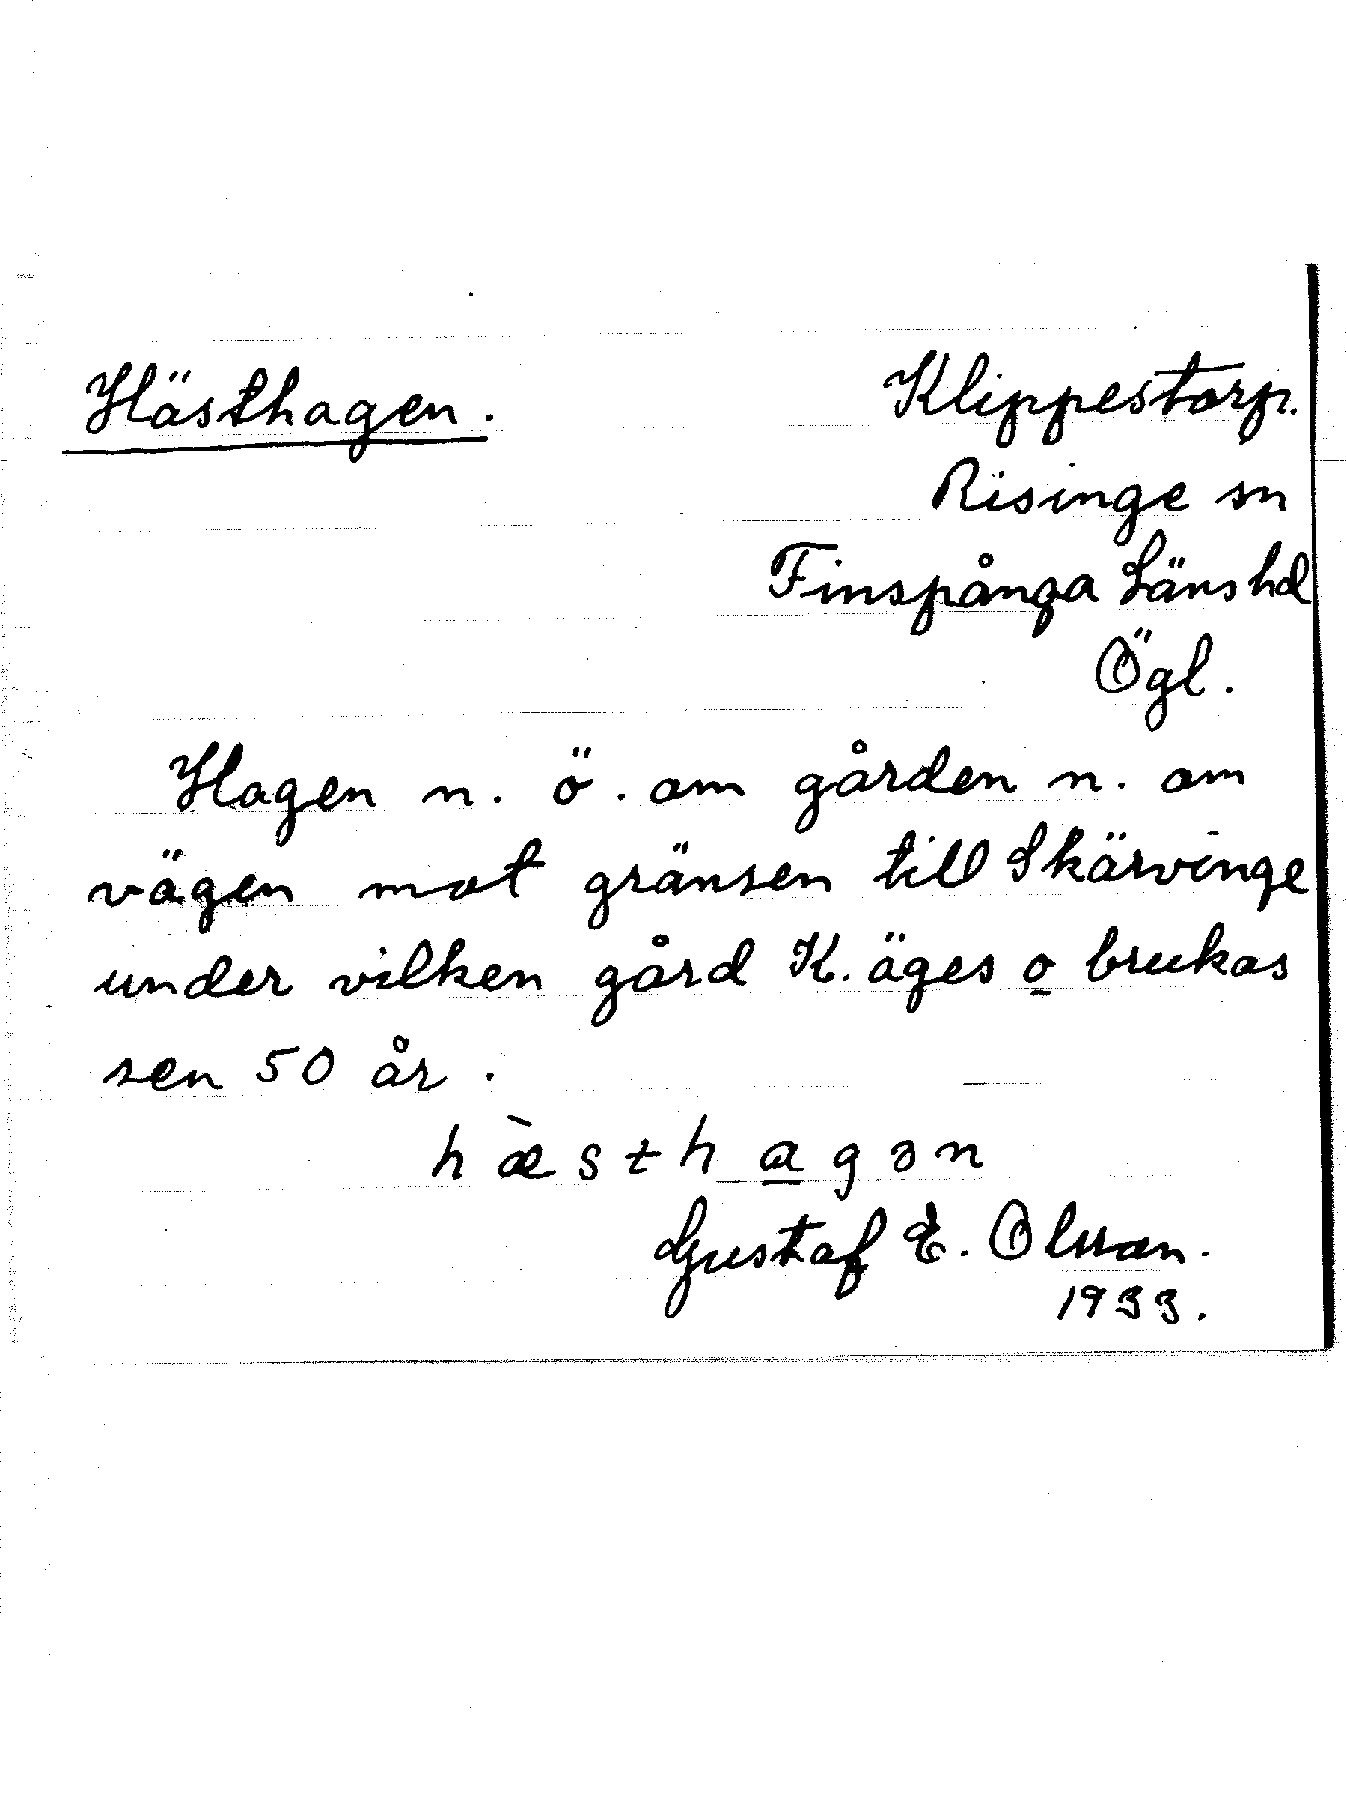 Hästhagen.
Klippestorp.
Risinge sn
Finspånga Länshd
Ögl.
Hagen n. ö. om gården n. om
vägen mot gränsen till Skärvinge
under vilken gård K. äges o brukas
sen 50 år.
hæ̀sthagən
Gustaf E. Olsson.
1933.